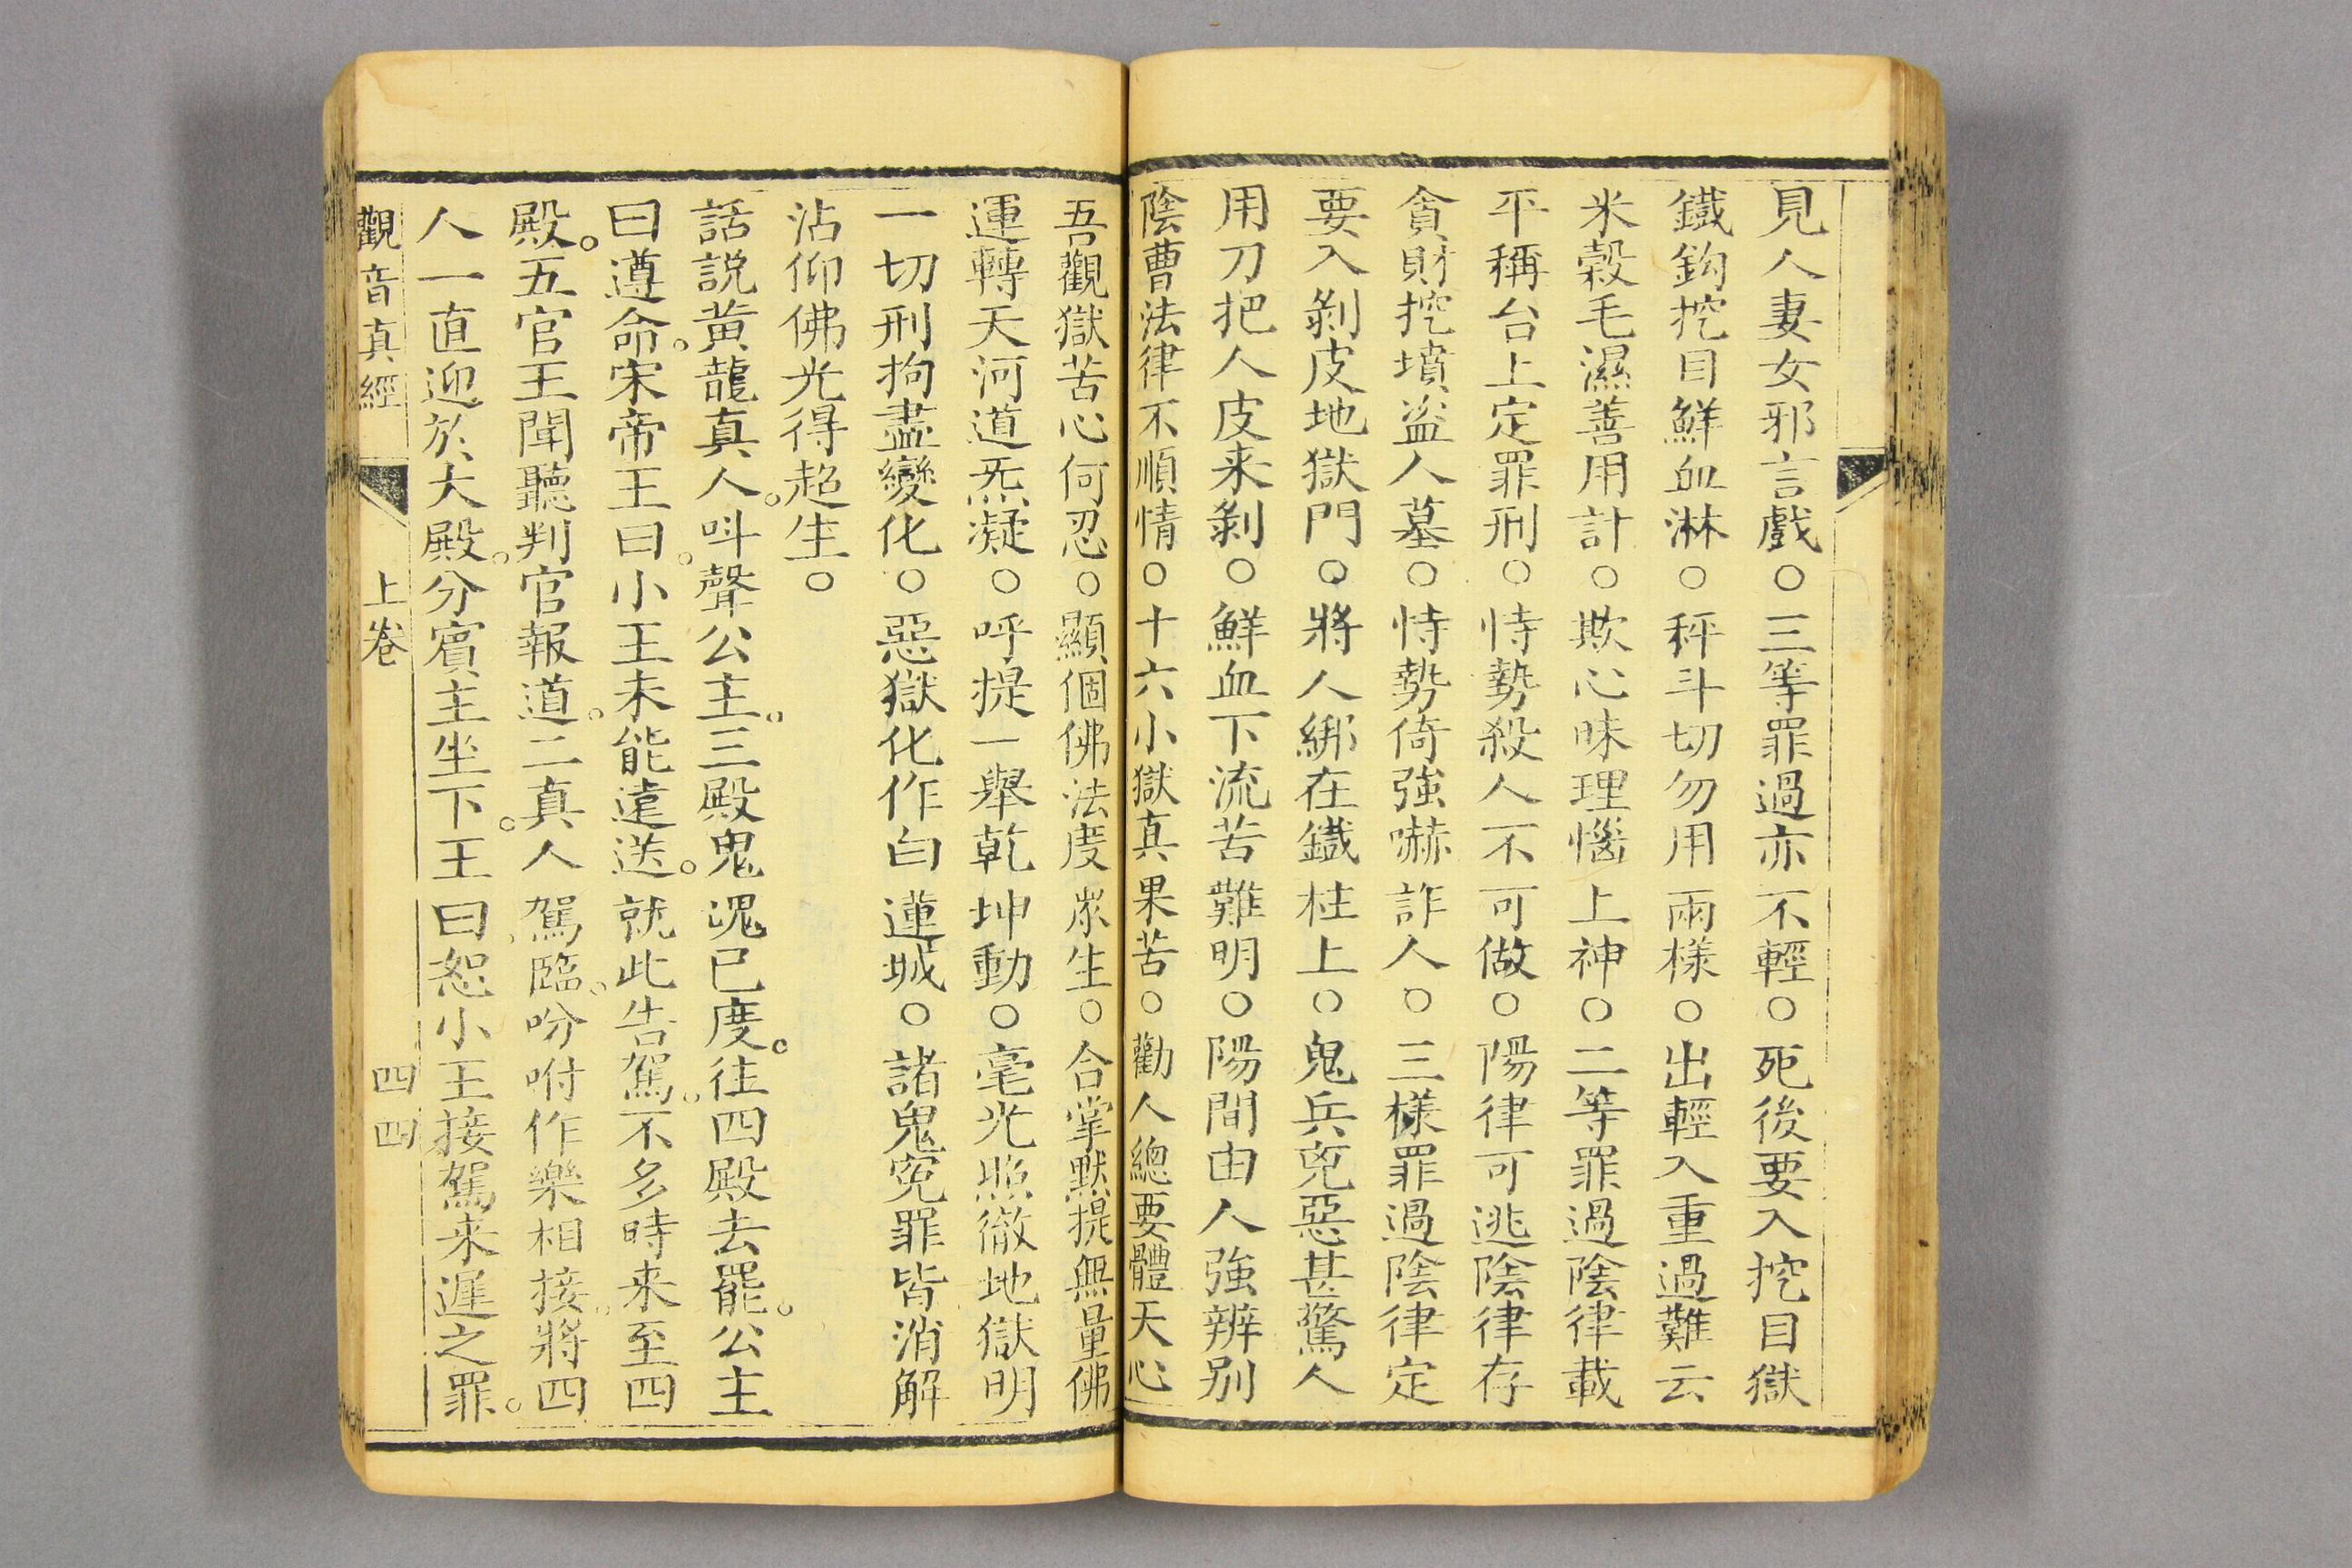 見人妻女邪言戲○三等罪過亦不輕○死後要入挖目獄
鐵鈎挖目鮮血淋○秤斗切勿用兩樣○出輕入重過難云
米穀毛濕善用計○欺心昧理惱上神○二等罪過陰律載
平稱台上定罪刑○恃勢殺人不可做○陽律可逃陰律存
貪財挖墳盜人墓○恃勢倚強嚇詐人○三樣罪過陰律定
要入剝皮地獄門○將人綁在鐵柱上○鬼兵兇惡甚驚人
用刀把人皮来剝○鮮血下流苦難明○陽間由人強辨別
陰曹法律不順情○十六小獄真果苦○勸人總要體天心
吾觀獄苦心何忍○顯個佛法度眾生○合掌默提無量佛
運轉天河道炁凝○呼提一舉乾坤動○毫光照徹地獄明
一切刑拘盡變化○惡獄化作白蓮城○諸鬼冤罪皆消解
沾仰佛光得超生○
話說黃龍真人。呌聲公主。三殿鬼魂已度。往四殿去罷。公主
曰遵命。宋帝王曰。小王未能遠送。就此告駕。不多時来至四
殿。五官王聞聽判官報道。二真人駕臨。吩咐作樂相接。將四
人一直迎於大殿。分賓主坐下。王曰恕小王接駕来遲之罪。
觀音真經 上卷 四四